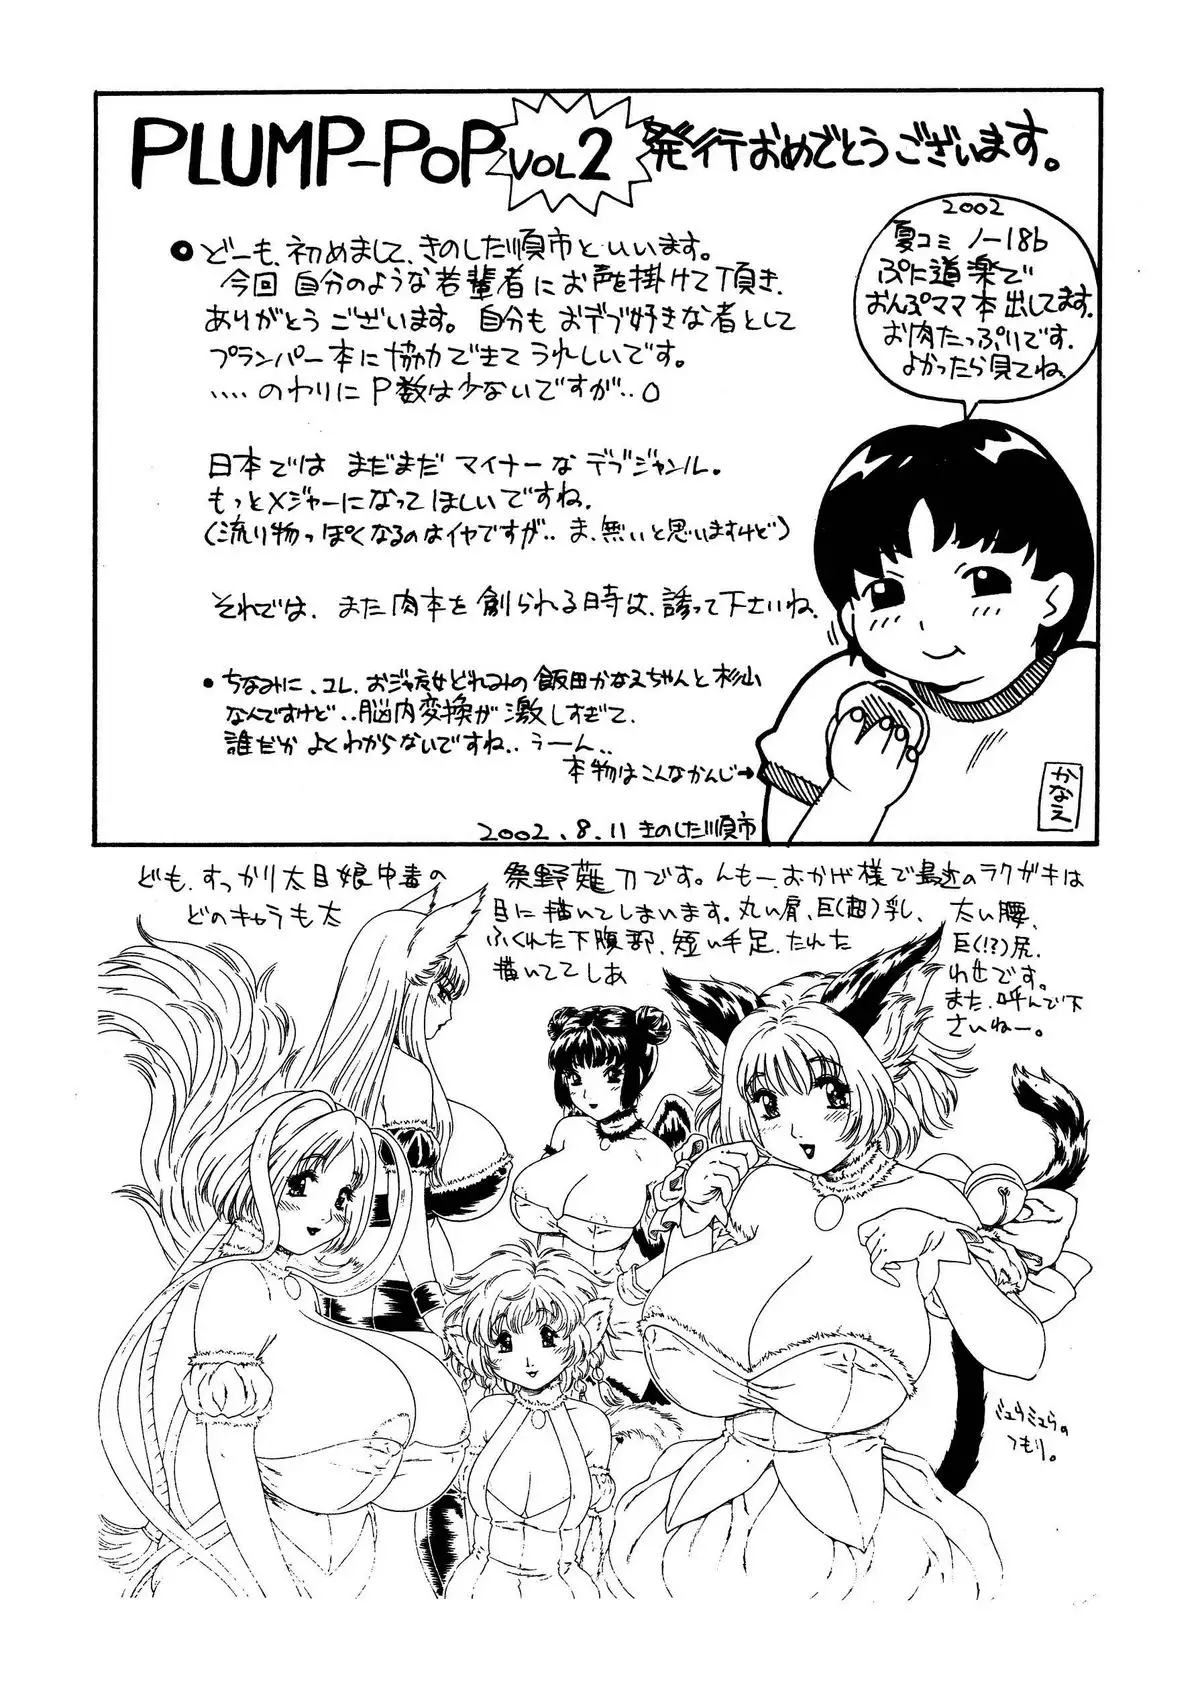 PLUMP-POP VOL2 発行おめでとうございます。
●どーも、初めまして、きのした順市といいます。
今回自分のような若輩者にお声を掛けて頂き、
ありがとうございます。自分もおデブ好きな者として
プランパー本に協力できてうれしいです。
‥‥のわりにP数は少ないですが‥。
日本では まだまだ マイナーな デブジャンル。
もっとメジャーになってほしいですね。
(流り物っぽくなるのはイヤですが‥ま、無いと思いますけど)
それでは、また肉本を創られる時は、誘って下さいね。
●ちなみに、コレ、おジャ魔女どれみの飯田かなえちゃんと杉山
なんですけど‥脳内変換が激しすぎて、
誰だかよくわからないですね‥うーん‥
本物はこんなかんじ→
2002.8.11 きのした順市
2002
夏コミ ノー18b
ぷに道楽で
おんぷママ本出してます。
お肉たっぷりです。
よかったら見てね。
かなえ
ども、すっかり太目娘中毒の
どのキャラも太
祭野薙刀です。んもー、おかげ様で最近のラクガキは
目に描いてしまいます。丸い肩、巨(超)乳、太い腰、
ふくれた下腹部、短い手足、たれた巨(!?)尻、
描いててしあわせです。
また、呼んで下
さいねー。
ミュウミュウの
つもり。